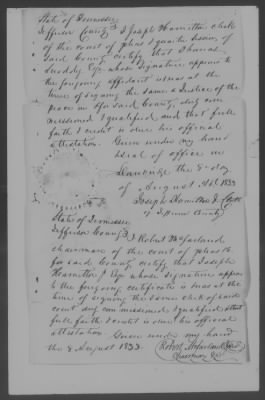 State of Tennessee
Jefferson County } I Joseph Hamilton clerk
of the court of pleas & quarter session of
said County certify that Thomas
Snoddy Esq whose signature appears to
the foregoing affidavit is & was at the
time of signing the same a Justice of the
peace in & for said County duly com
missioned & qualified and that full
faith & credit is due his official
attestation. Given under my hand
& seal of office in
Dandridge the 8 day
of August AD. 1833
Joseph Hamilton Clerk
of Jefferson County
State of Tennessee
Jefferson County } I Robert McFarland
chairman of the court of pleas &c
for said County certify that Joseph
Hamilton Esqr whose signature appears
to the foregoing certificate is & was at the
time of signing the same clerk of said
court duly commissioned & qualified & that
full faith & credit is due his official
attestation Given under my hand
the 8 August 1833.
Robert McFarland
Chairman &c